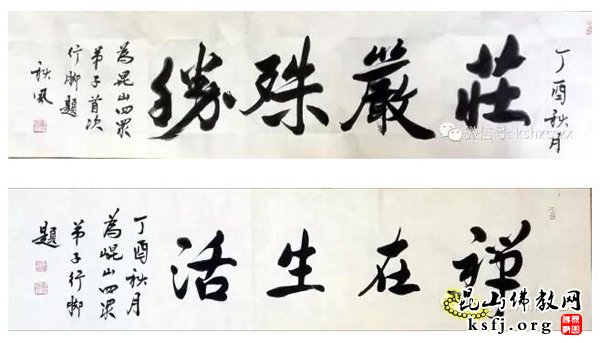 丁酉秋月
莊嚴殊勝
為崑山四眾
弟子首次
行脚題
秋風
微信号:
禪在生活
丁酉秋月
為崐山四眾
弟子行脚
題
昆山佛教网
ksfj.org